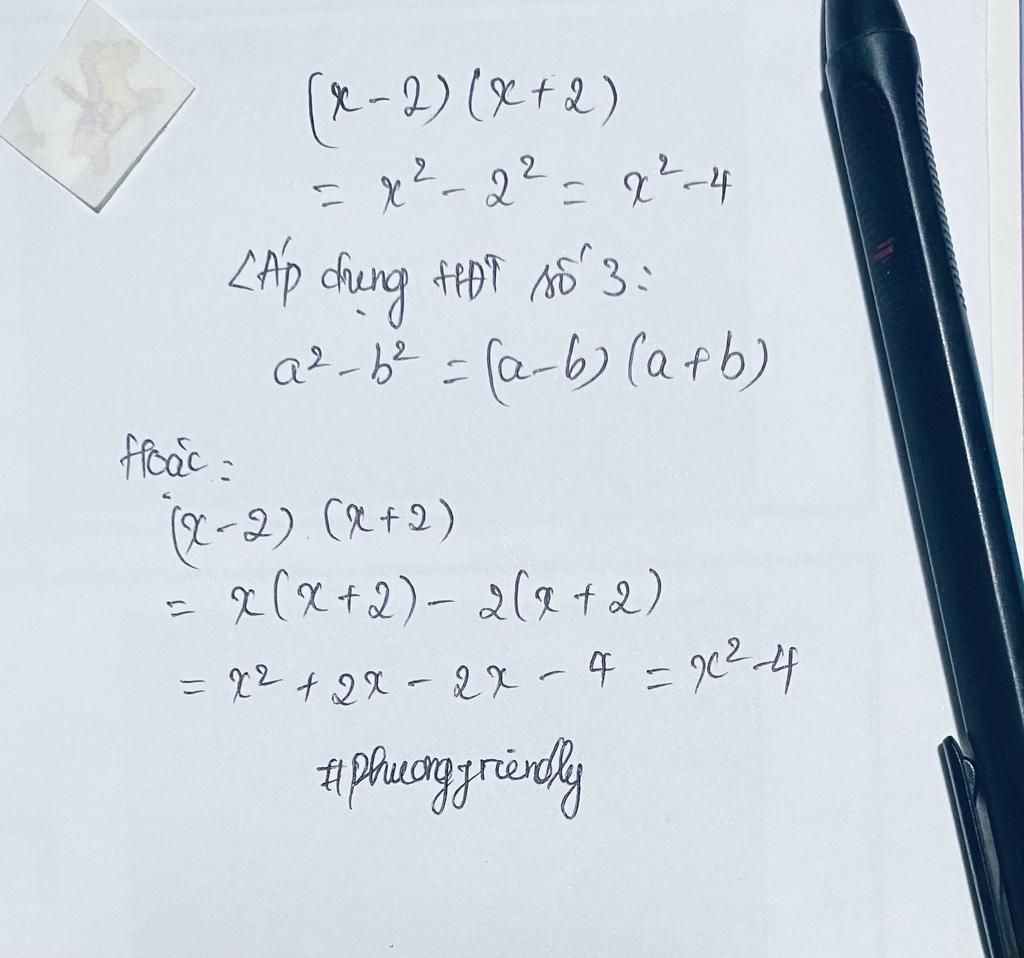 (x-2)(x+2)
= x² - 2² = x² - 4
<Áp dụng HĐT số 3:
a² - b² = (a-b)(a+b)
Hoặc:
(x-2).(x+2)
= x(x+2) - 2(x+2)
= x² + 2x - 2x - 4 = x² - 4
#phuongfriendly